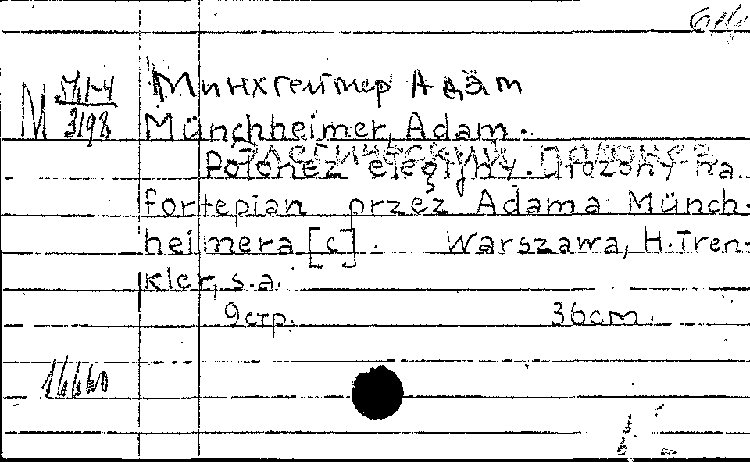 М 571-4
3198
Минхгеймер Адам
Münchheimer, Adam.
Polonez elegijny. Ułożony na
fortepian przez Adama Münch-
heimera [c]. Warszawa, H. Tren-
kler, s.a.
9 стр. 36 cm.